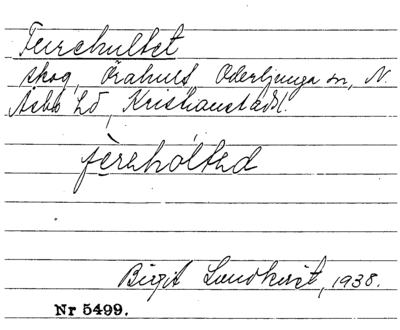 Furehultet
skog, Örahult, Oderljunga sn, N.
Åsbo hd, Kristianstads l.
fereholted
Birgit Lundkvist, 1938.
Nr 5499.